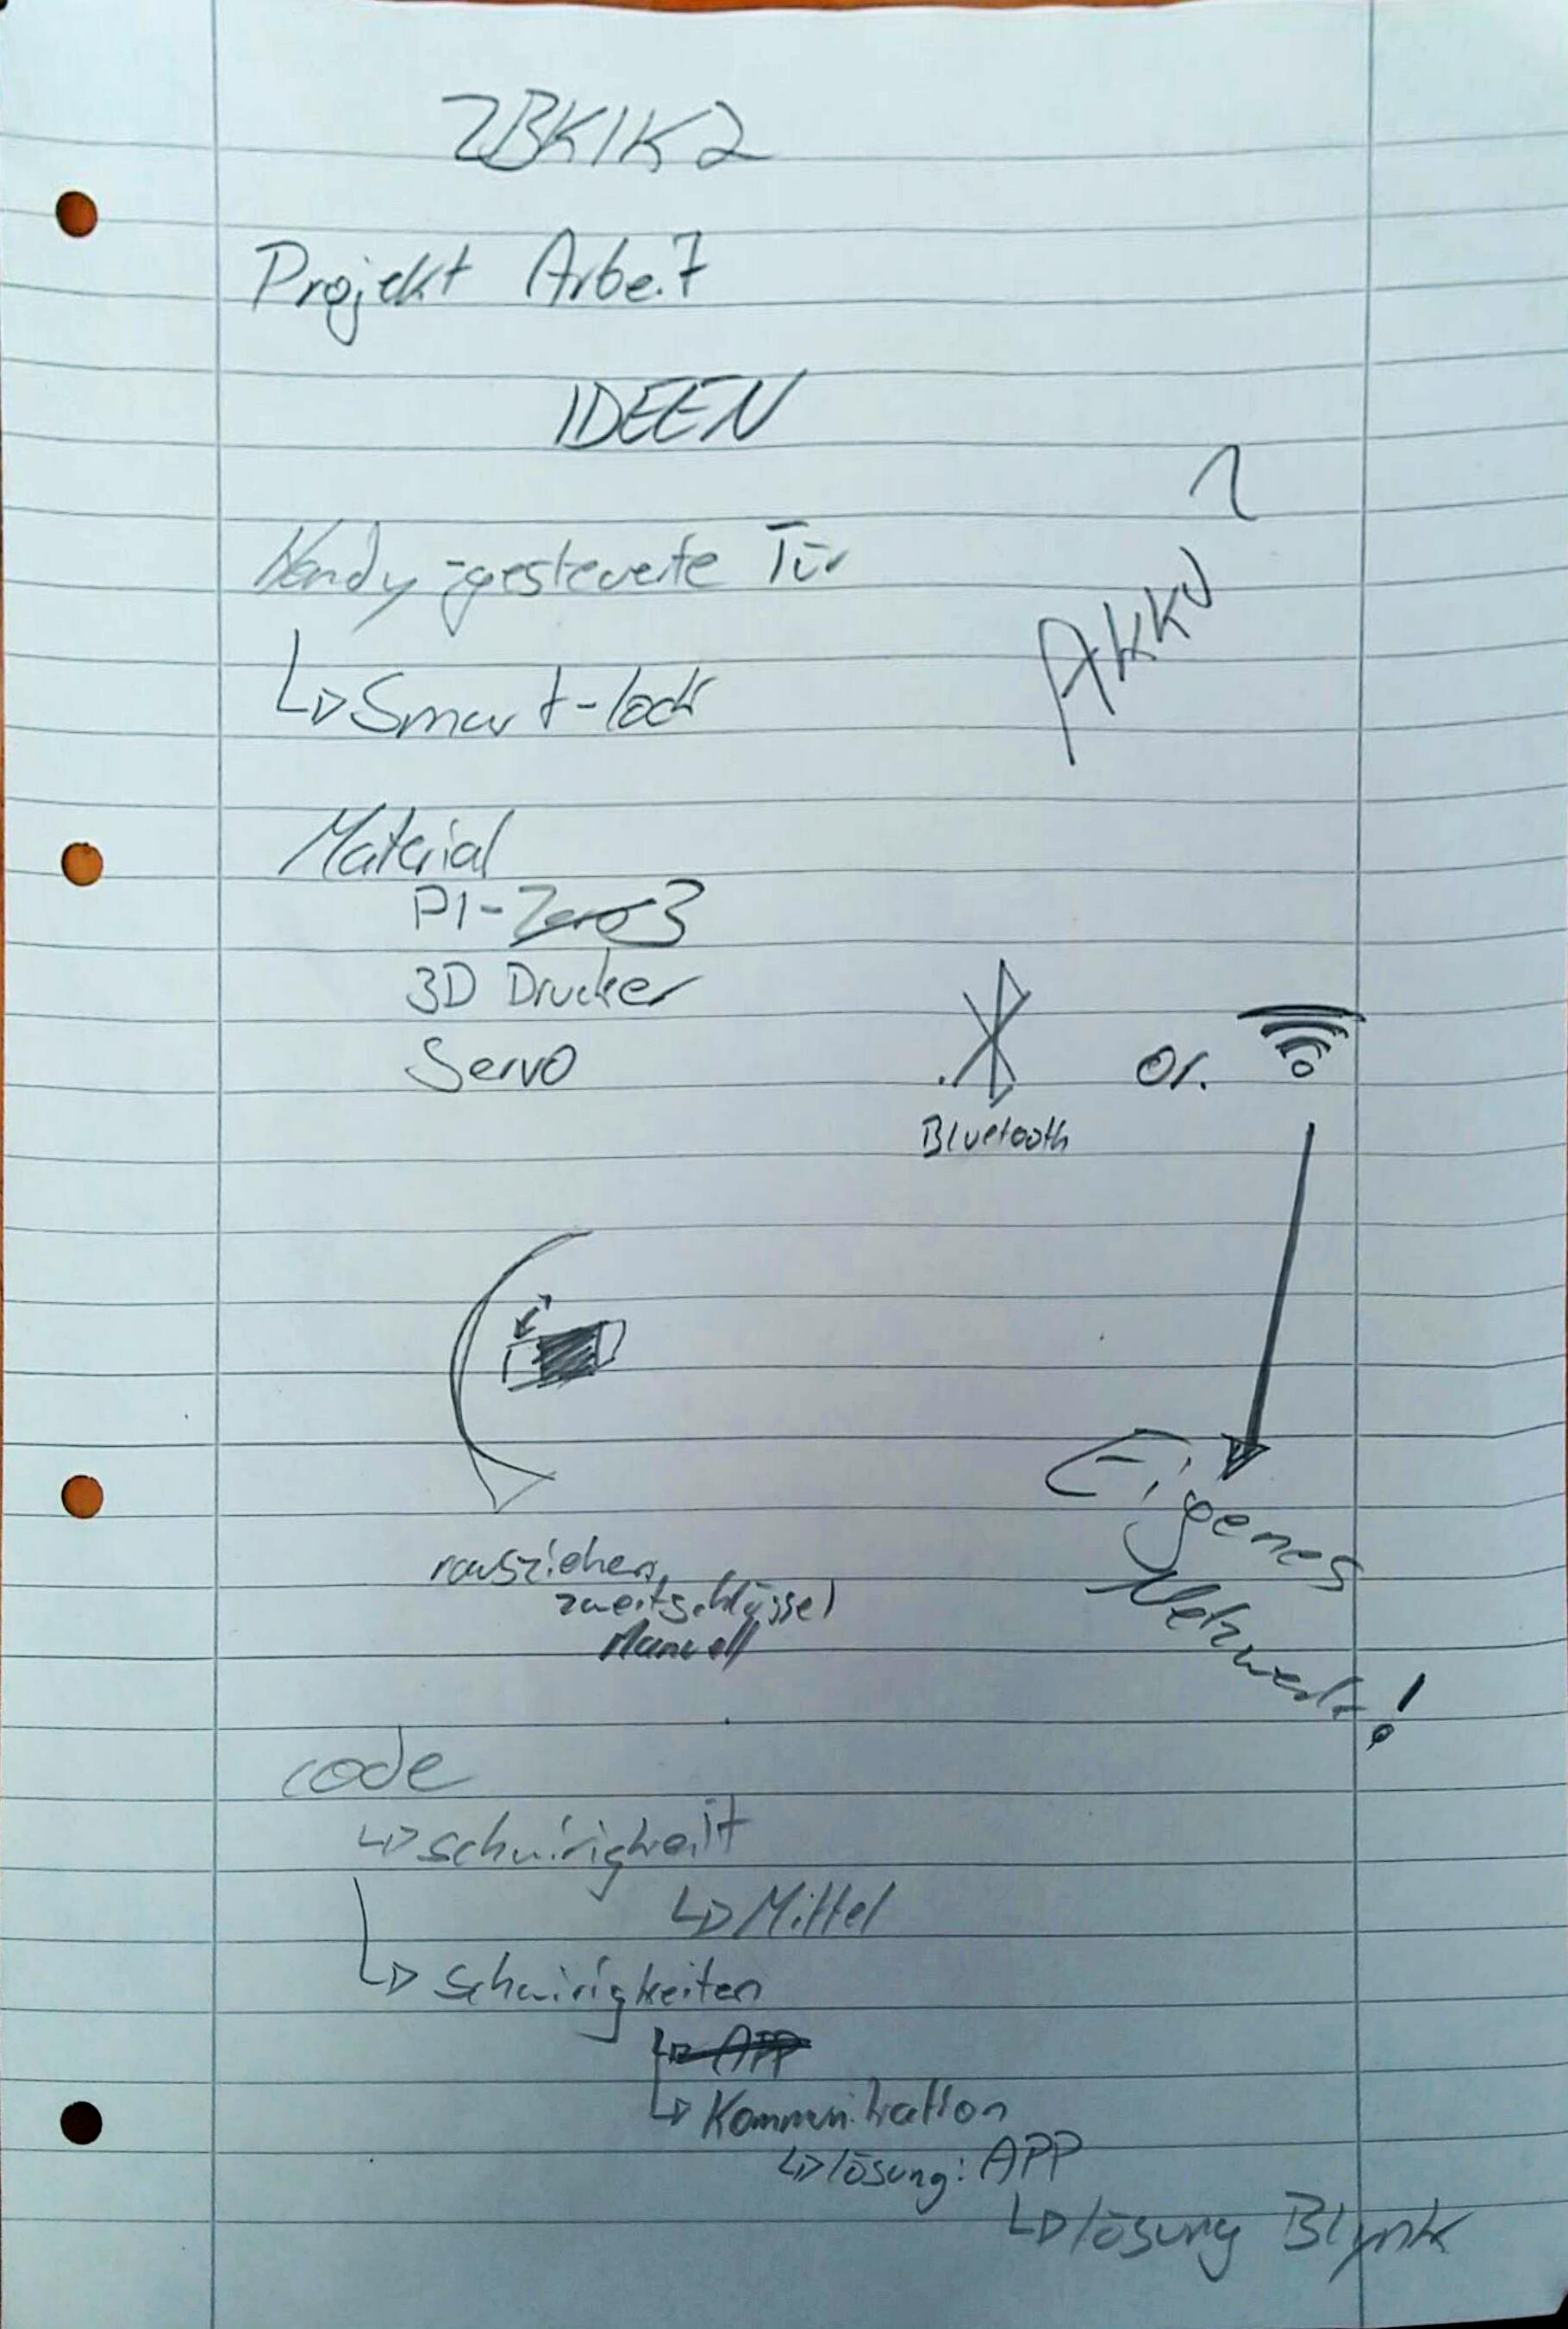 2BK1K2
Projekt Arbeit
IDEEN
Handy-gesteuerte Tür
↳ Smart-lock
Akku?
Material
PI-Zero 3
3D Drucker
Servo
Bluetooth
or.
Eigenes
Netzwerk!
rausziehen,
zweitschlüssel
Manuell
code
↳ schwirigkeit
↳ Mittel
↳ schwirigkeiten
↳ APP
↳ Kommunikation
↳ lösung: APP
↳ lösung Blynk